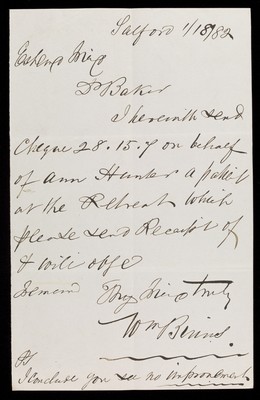 Salford 1/18/82
Esteemd Friend
Dr Baker
I herewith send
Cheque 28.15.7 on behalf
of Ann Hunter a patient
at the Retreat which
please send Receipt of
& will obge
Thy Friend truly
Wm Binns
PS
I conclude you see no improvement